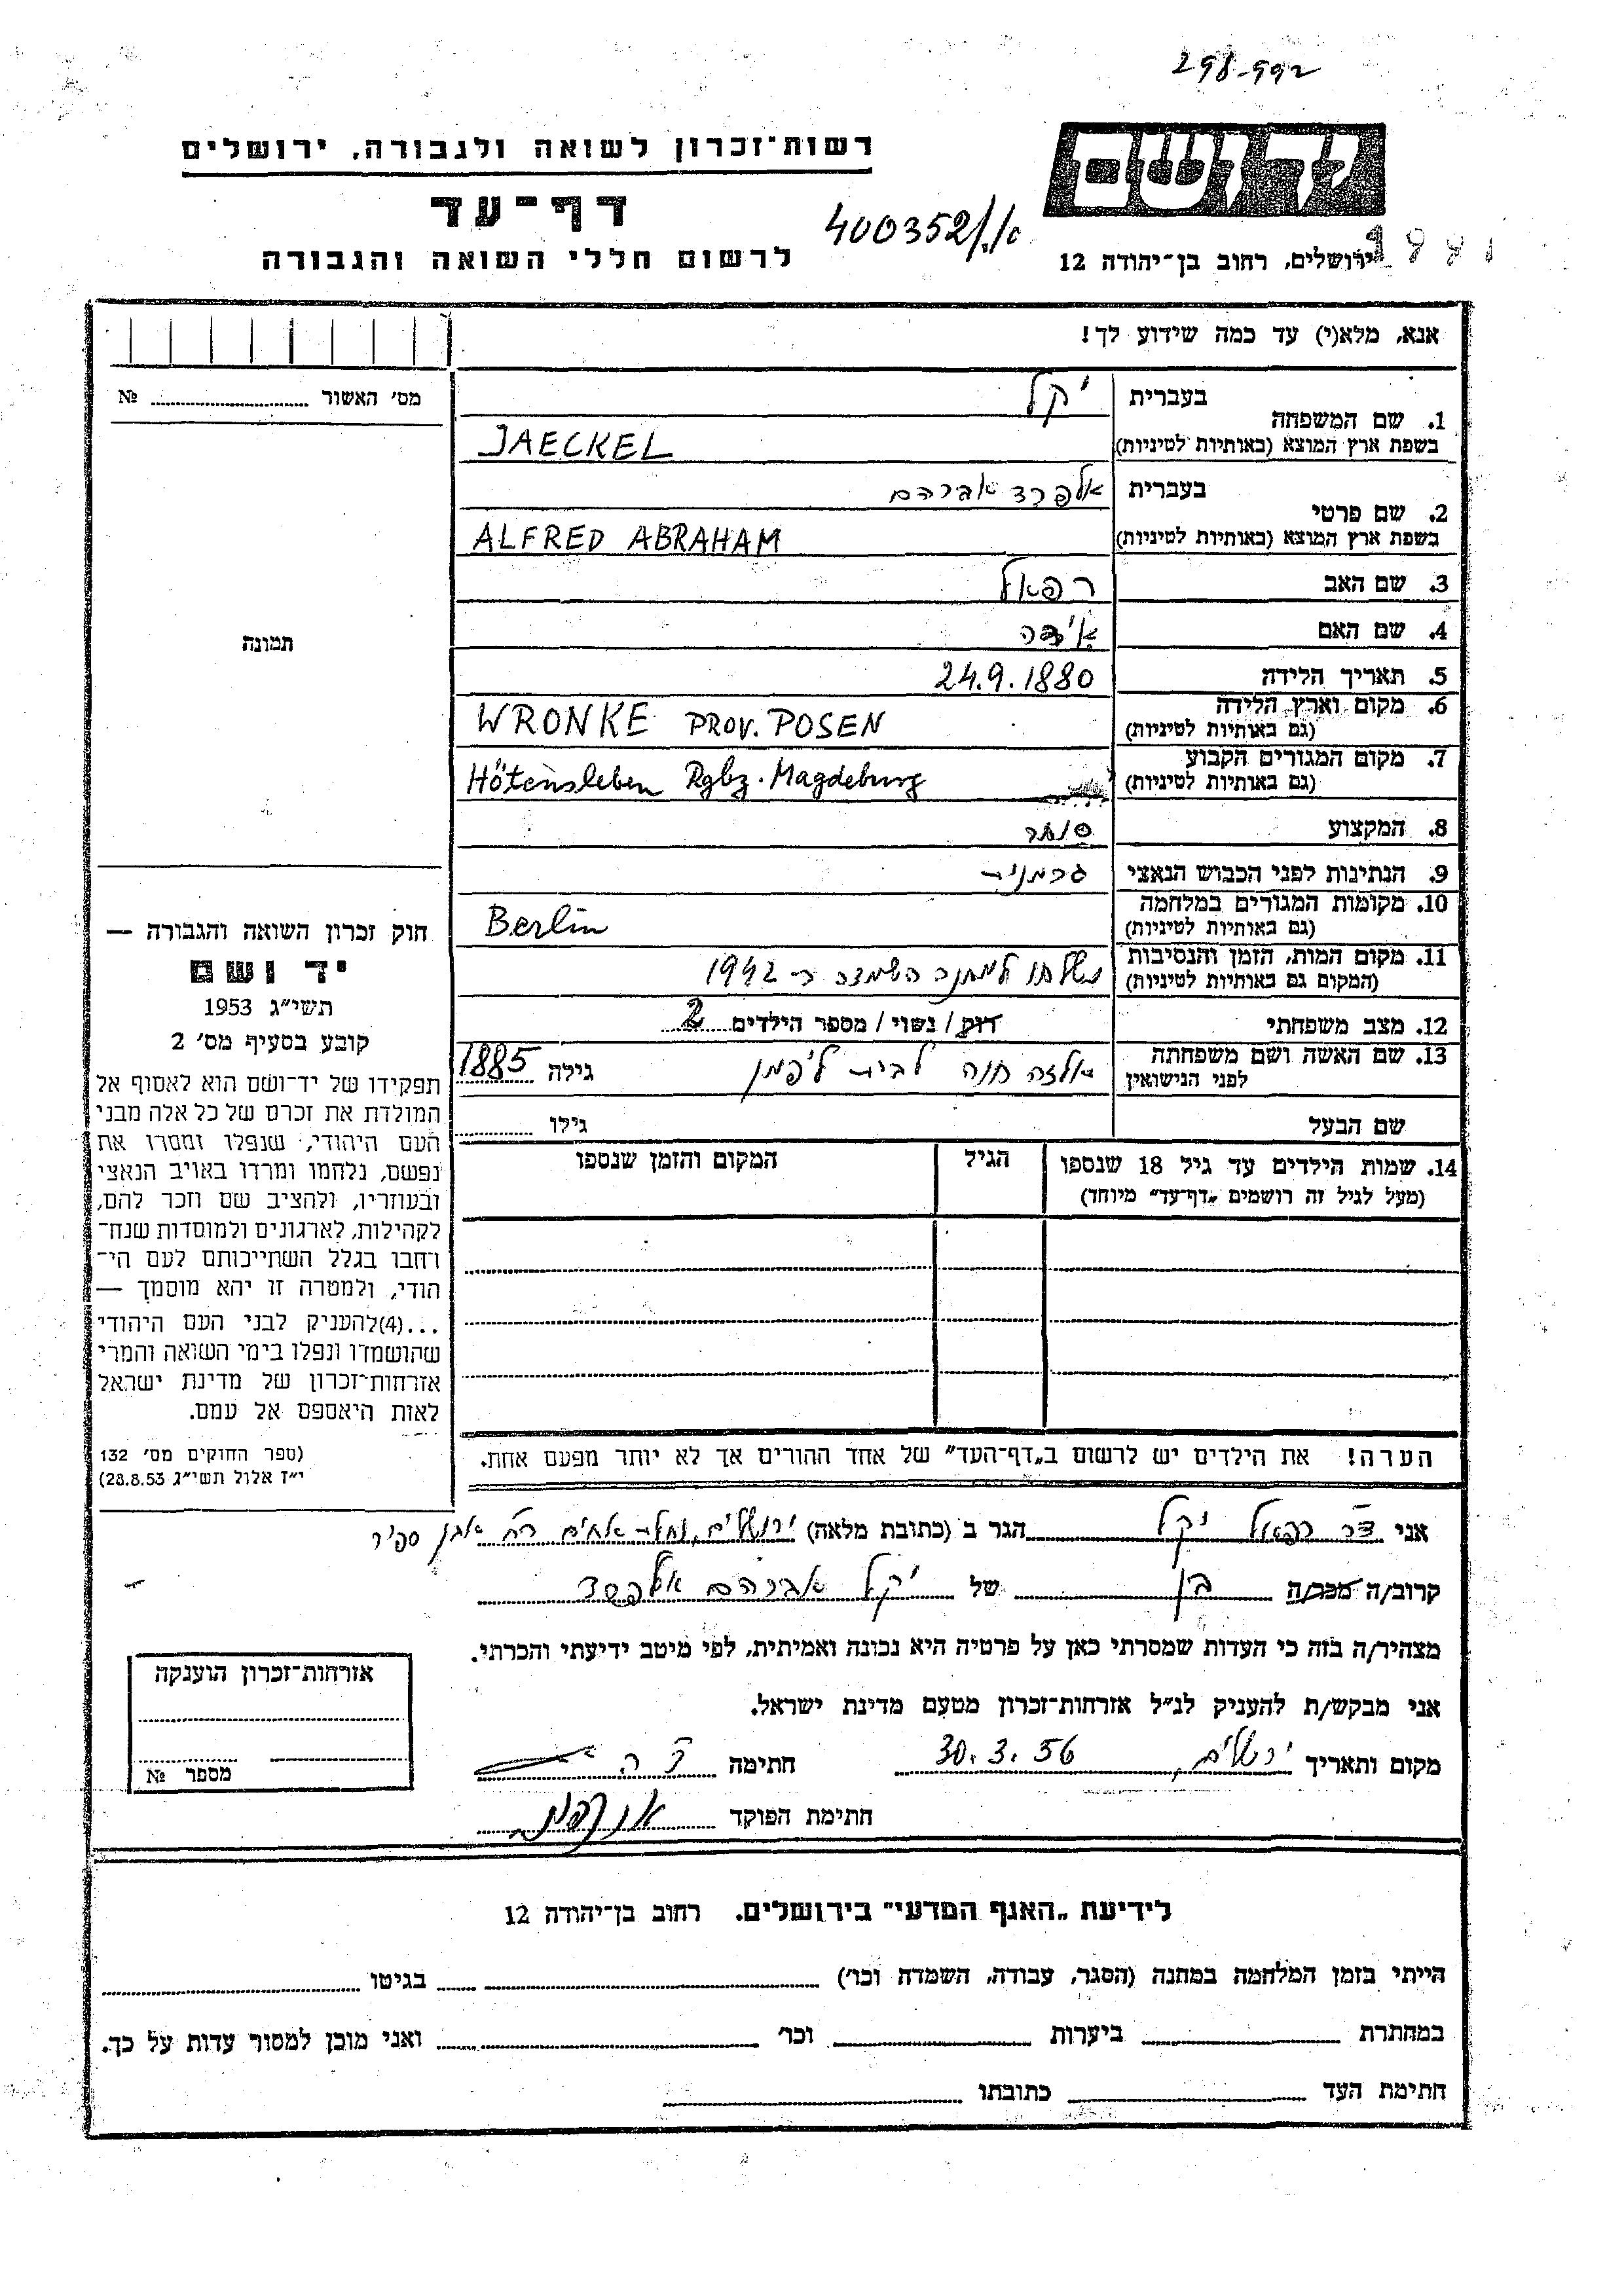 298-992
רשות־זכרון לשואה ולגבורה, ירושלים
יד ושם
דף־עד
400352/
לרשום חללי השואה והגבורה
ירושלים, רחוב בן־יהודה 12
אנא, מלא(י) עד כמה שידוע לך!
מס' האשור № 
1. שם המשפחה
בעברית
יקל
בשפת ארץ המוצא (באותיות לטיניות)
JAECKEL
2. שם פרטי
בעברית
אלפרד אברהם
בשפת ארץ המוצא (באותיות לטיניות)
ALFRED ABRAHAM
3. שם האב
רפאל
4. שם האם
תמונה
5. תאריך הלידה
24.9.1880
6. מקום וארץ הלידה
(גם באותיות לטיניות)
WRONKE PROV. POSEN
7. מקום המגורים הקבוע
(גם באותיות לטיניות)
Hötensleben Rgbz. Magdeburg
8. המקצוע
סוחר
9. הנתינות לפני הכבוש הנאצי
גרמנית
10. מקומות המגורים במלחמה
(גם באותיות לטיניות)
Berlin
11. מקום המות, הזמן והנסיבות
(המקום גם באותיות לטיניות)
נשלחו למחנה השמדה ב־1942
12. מצב משפחתי
רווק / נשוי / מספר הילדים 2
13. שם האשה ושם משפחתה
לפני הנישואין
אלזה חנה לבית ליפמן
גילה 1885
שם הבעל
גילו
14. שמות הילדים עד גיל 18 שנספו
(מעל לגיל זה רושמים „דף־עד" מיוחד)
הגיל
המקום והזמן שנספו
הערה! את הילדים יש לרשום ב„דף־העד" של אחד ההורים אך לא יותר מפעם אחת.
חוק זכרון השואה והגבורה —
יד ושם
תשי"ג 1953
קובע בסעיף מס' 2
תפקידו של יד־ושם הוא לאסוף אל
המולדת את זכרם של כל אלה מבני
העם היהודי, שנפלו ומסרו את
נפשם, נלחמו ומרדו באויב הנאצי
ובעוזריו, ולהציב שם וזכר להם,
לקהילות, לארגונים ולמוסדות שנח־
רחבו בגלל השתייכותם לעם הי־
הודי, ולמטרה זו יהא מוסמך —
...(4)להעניק לבני העם היהודי
שהושמדו ונפלו בימי השואה והמרי
אזרחות־זכרון של מדינת ישראל
לאות היאספם אל עמם.
(ספר החוקים מס' 132
י"ז אלול תשי"ג 28.8.53)
אני דר רפאל יקל הגר ב (כתובת מלאה) ירושלים, נחלת אחים רח אבן ספיר
קרוב/ה מכר/ה בן של יקל אברהם אלפרד
מצהיר/ה בזה כי העדות שמסרתי כאן על פרטיה היא נכונה ואמיתית, לפי מיטב ידיעתי והכרתי.
אני מבקש/ת להעניק לנ"ל אזרחות־זכרון מטעם מדינת ישראל.
מקום ותאריך ירושלים, 30.3.56 חתימה
חתימת הפוקד
אזרחות־זכרון הוענקה
מספר №
לידיעת „האגף המדעי" בירושלים. רחוב בן־יהודה 12
הייתי בזמן המלחמה במחנה (הסגר, עבודה, השמדה וכו') בגיטו
במחתרת ביערות וכו' ואני מוכן למסור עדות על כך.
חתימת העד כתובתו